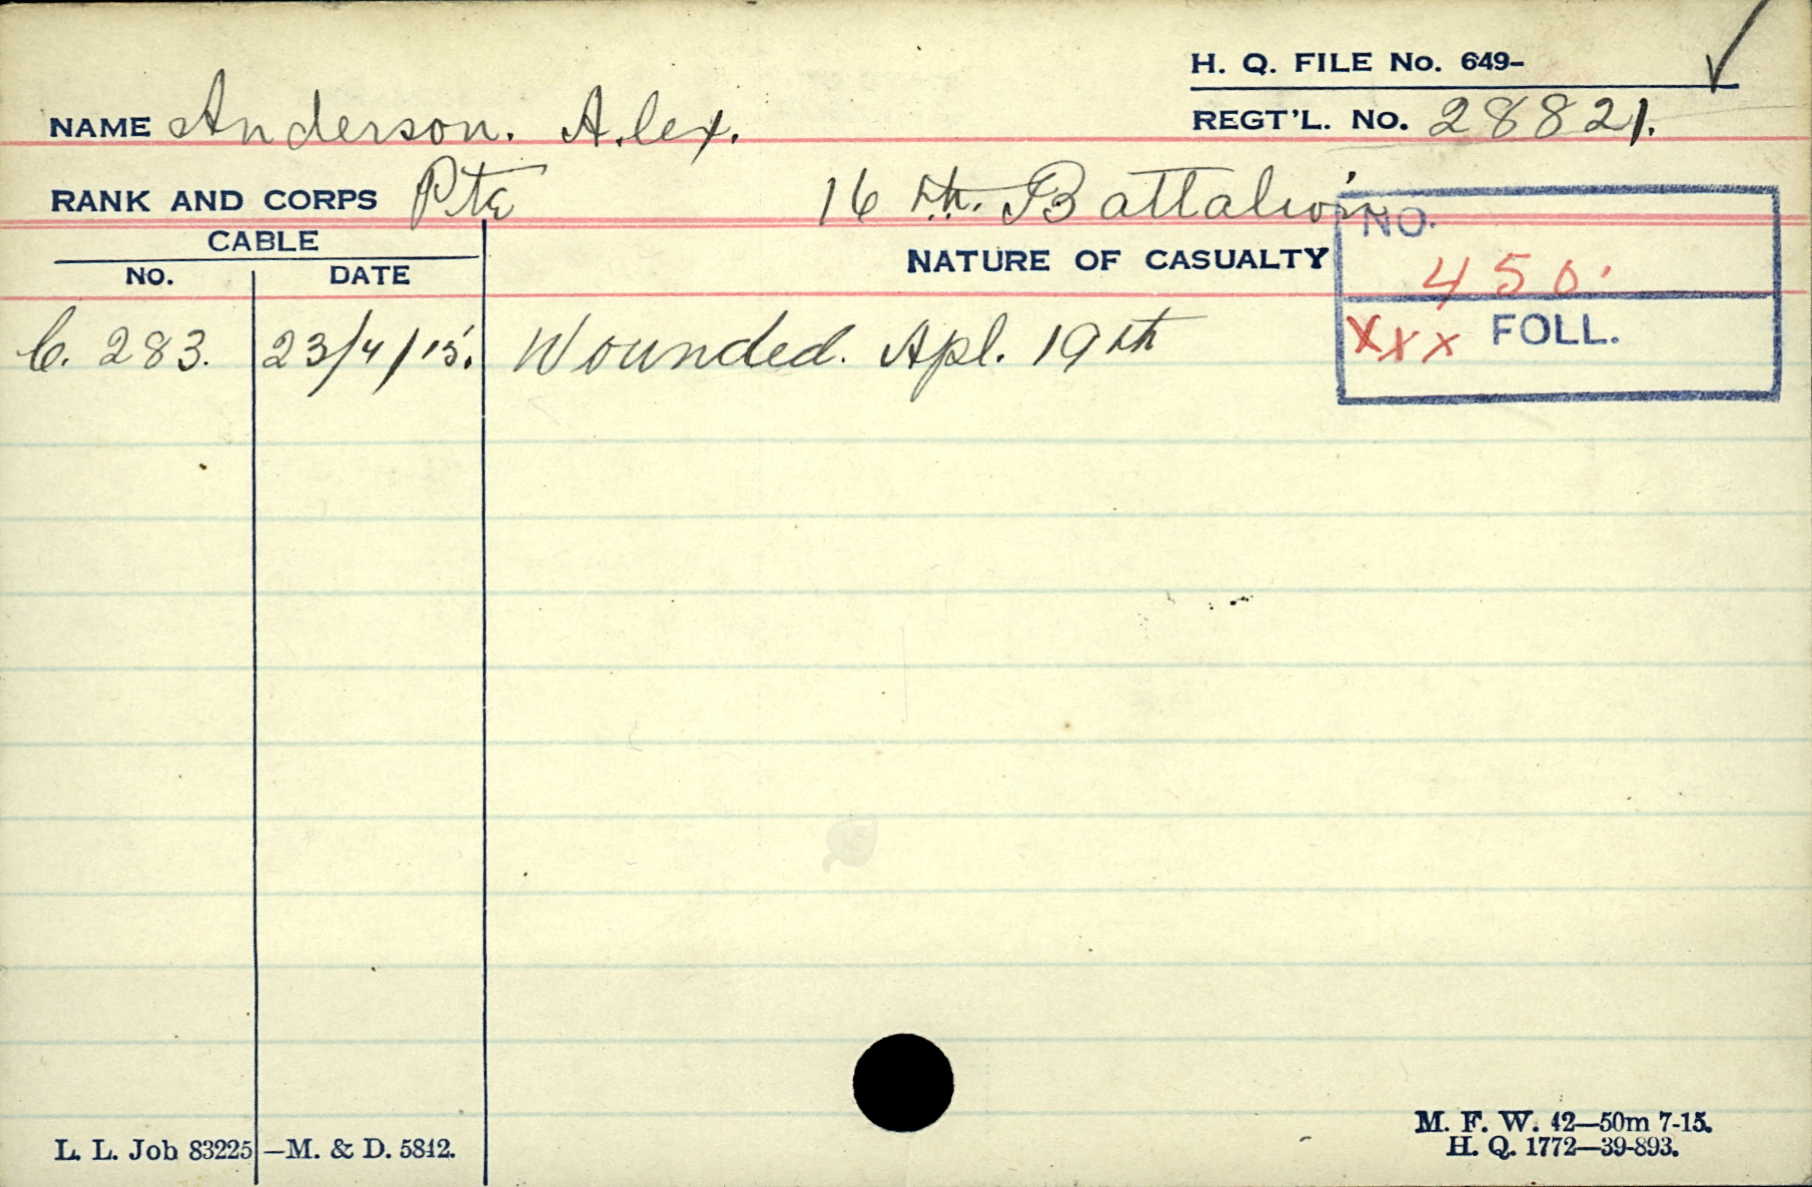 H. Q. FILE No. 649-
NAME Anderson. Alex. REGT'L. No. 28821.
RANK AND CORPS Pte 16th. Battalion
CABLE
NO. DATE NATURE OF CASUALTY
NO.
450.
C. 283. 23/4/15. Wounded. Apl. 19th
xxx FOLL.
L. L. Job 83225—M. & D. 5842.
M. F. W. 42—50m 7-15.
H. Q. 1772—39-893.